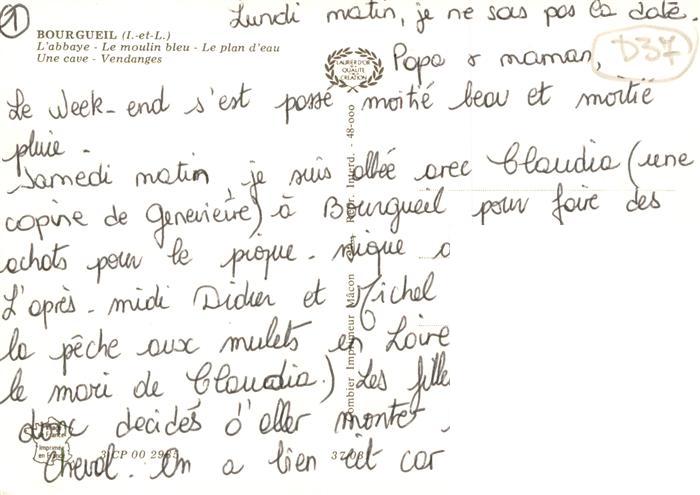 1
Lundi matin, je ne sais pas la date.
BOURGUEIL (I.-et-L.)
L'abbaye - Le moulin bleu - Le plan d'eau
Une cave - Vendanges
LAURIER D'OR
QUALITÉ
CRÉATION
Papa & maman,
D37
Le week-end s'est passé moitié beau et moitié
pluie.
Samedi matin, je suis allée avec Claudia (une
copine de Geneviève) à Bourgueil pour faire des
achats pour le pique-nique
L'après-midi Didier et Michel
la pêche aux mulets en Loire
le mari de Claudia.) Les fille
donc decidés d'aller monter
cheval. On a bien
car
Imprimé
en France
3 CP 00 2985
37/08
ombier Imprimeur Mâcon
Repr. Interd. - 48-000